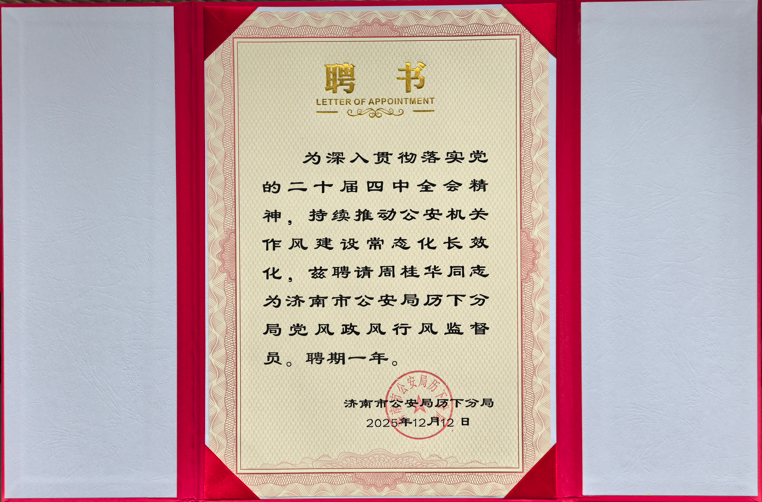 聘书
LETTER OF APPOINTMENT
为深入贯彻落实党
的二十届四中全会精
神，持续推动公安机关
作风建设常态化长效
化，兹聘请周桂华同志
为济南市公安局历下分
局党风政风行风监督
员。聘期一年。
济南市公安局历下分局
2025年12月12日